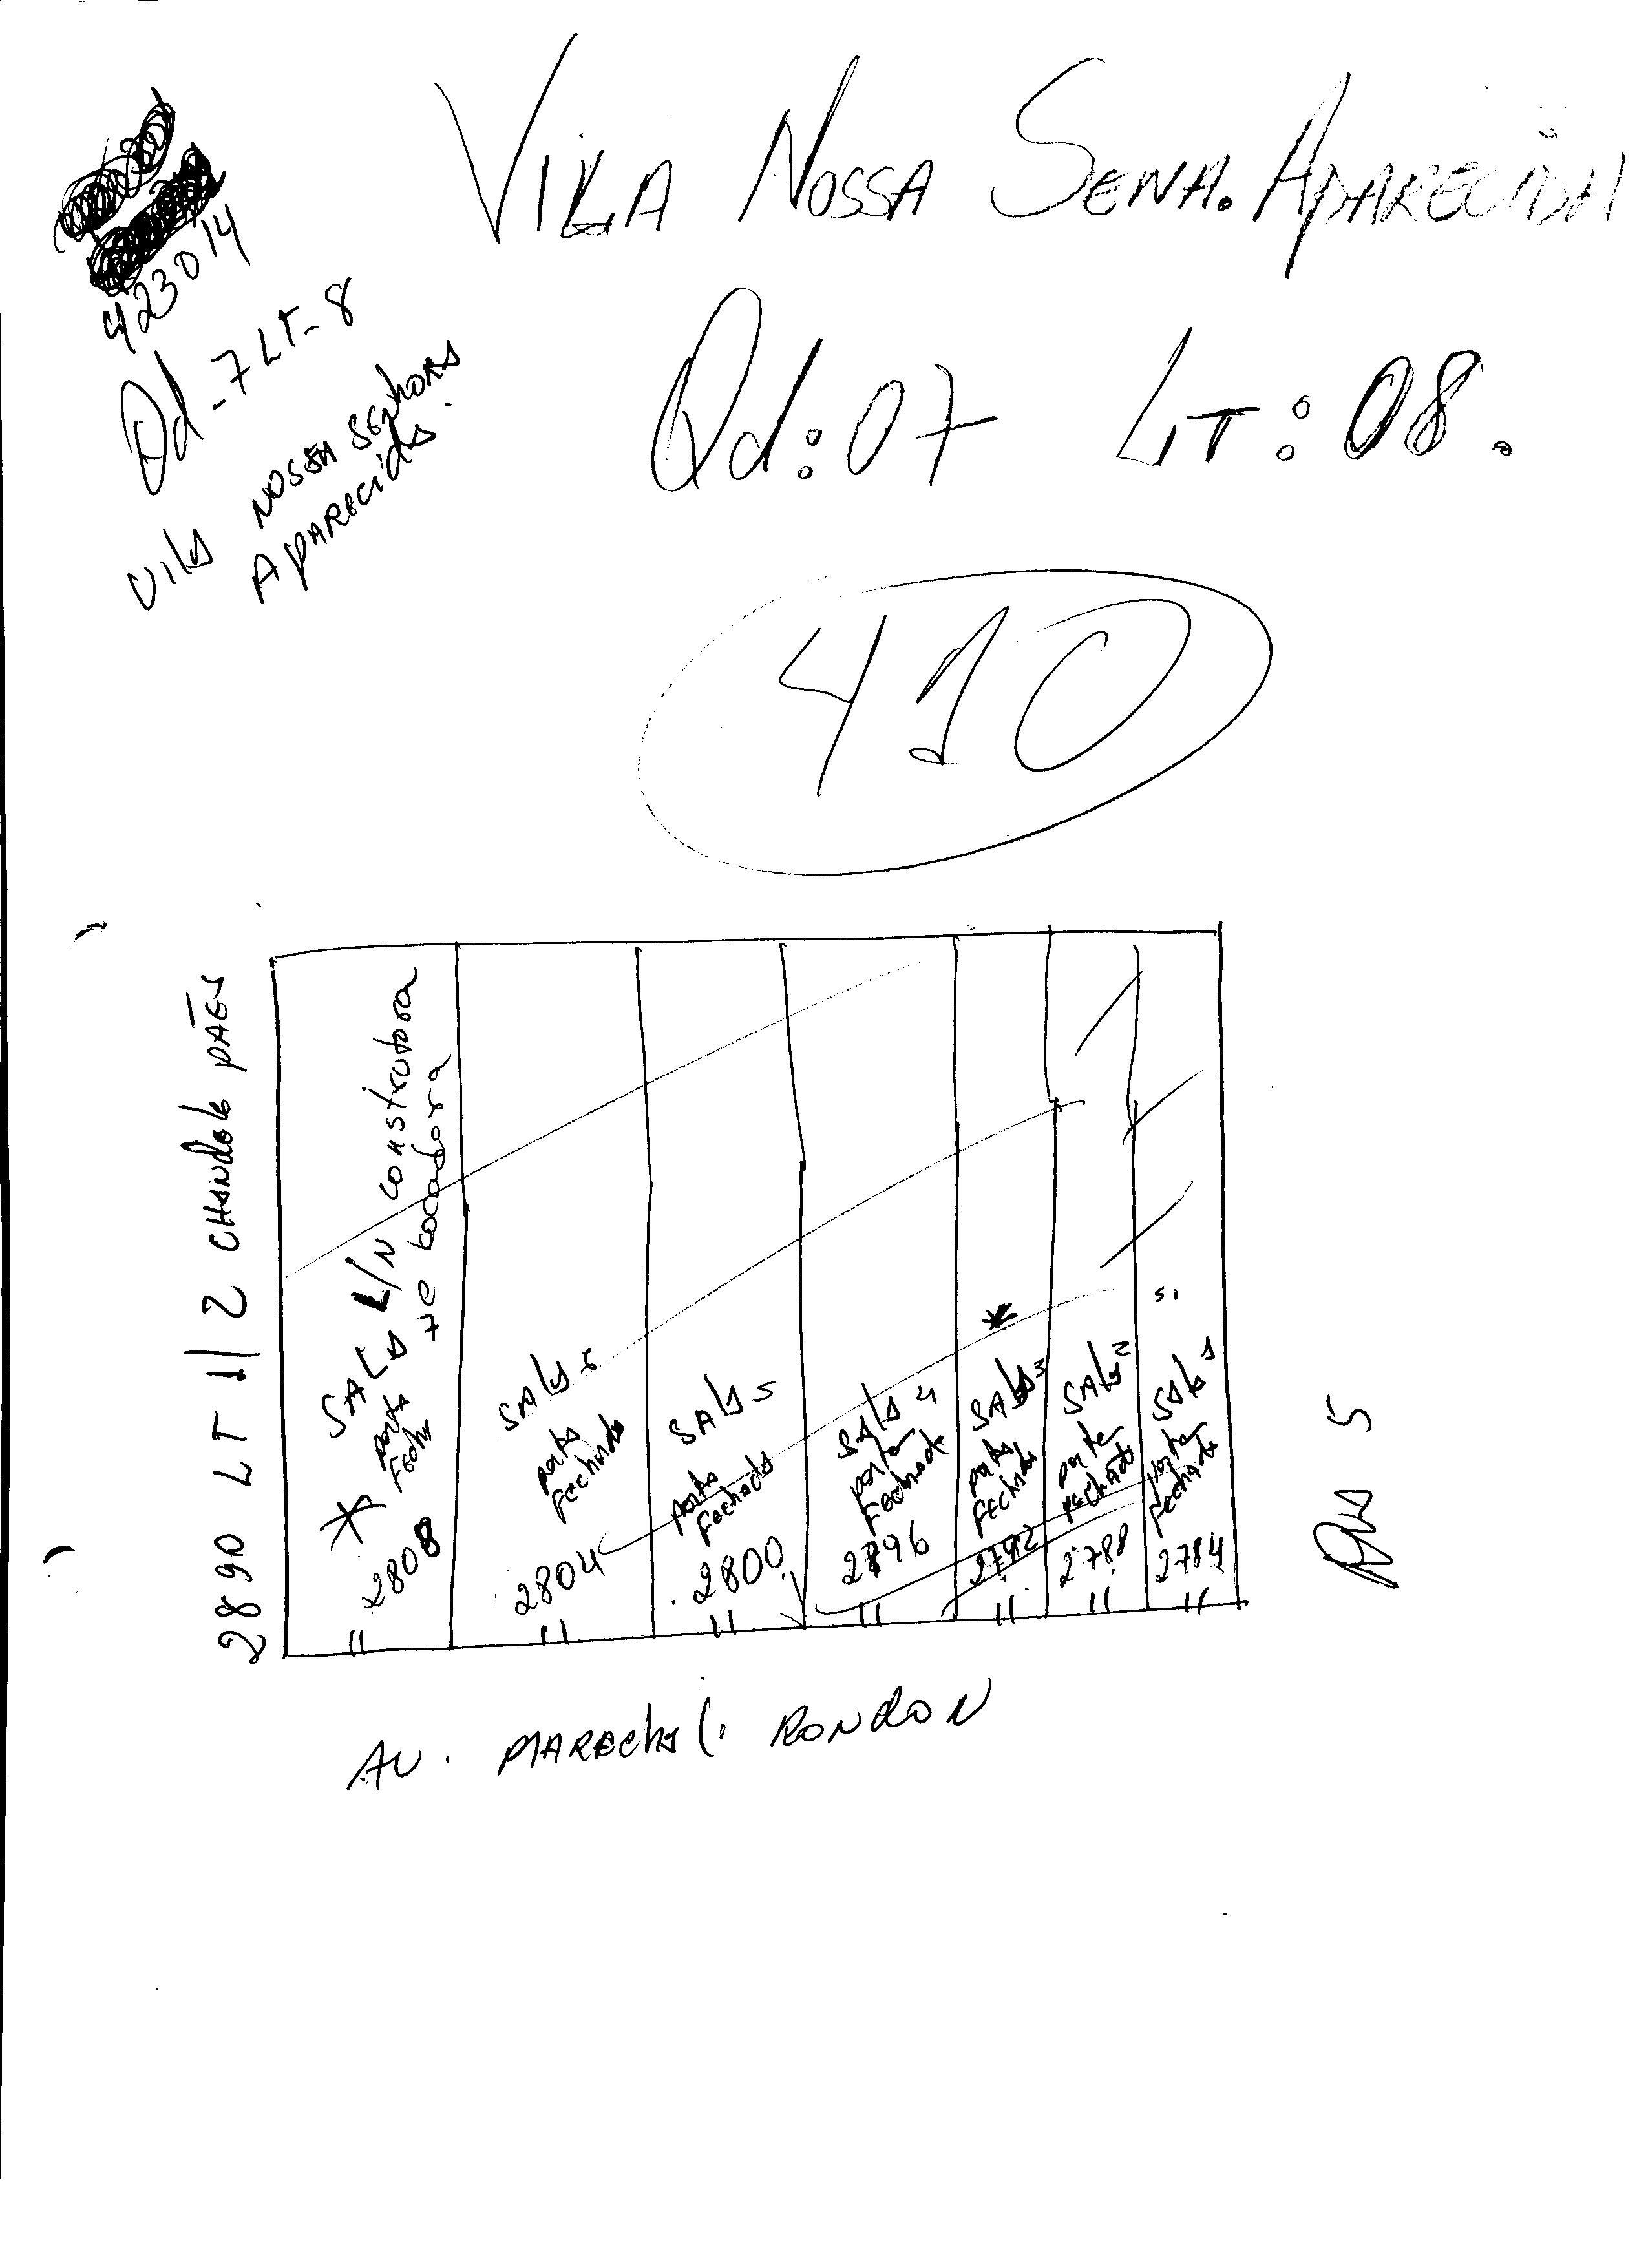 VILA NOSSA SENA. APARECIDA
423014
Qd-7 LT-8
VILA NOSSA SENHORA
APARECIDA.
Qd: 07 LT: 08.
410
2890 LT 1/2 CHANDELE PÃES
SALA L/N construtora
e locadora
* porta
2808
SALA 6
porta
Fechada
2804
SALA 5
porta
Fechada
2800
SALA 4
porta
Fechada
2796
*
SALA 3
porta
Fechada
2792
SALA 2
porta
Fechada
2788
S1
SALA 1
porta
Fechada
2784
RUA 5
AV. MARECHAL RONDON